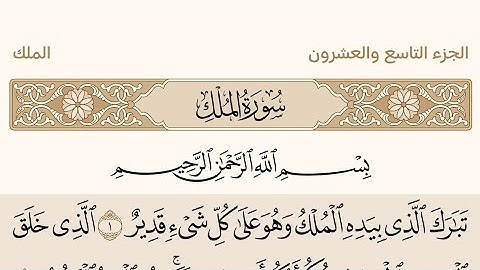 الجزء التاسع والعشرون
الملك
سُورَةُ المُلْكِ
بِسْمِ ٱللَّهِ ٱلرَّحْمَٰنِ ٱلرَّحِيمِ
تَبَٰرَكَ ٱلَّذِى بِيَدِهِ ٱلْمُلْكُ وَهُوَ عَلَىٰ كُلِّ شَىْءٍ قَدِيرٌ ١ ٱلَّذِى خَلَقَ